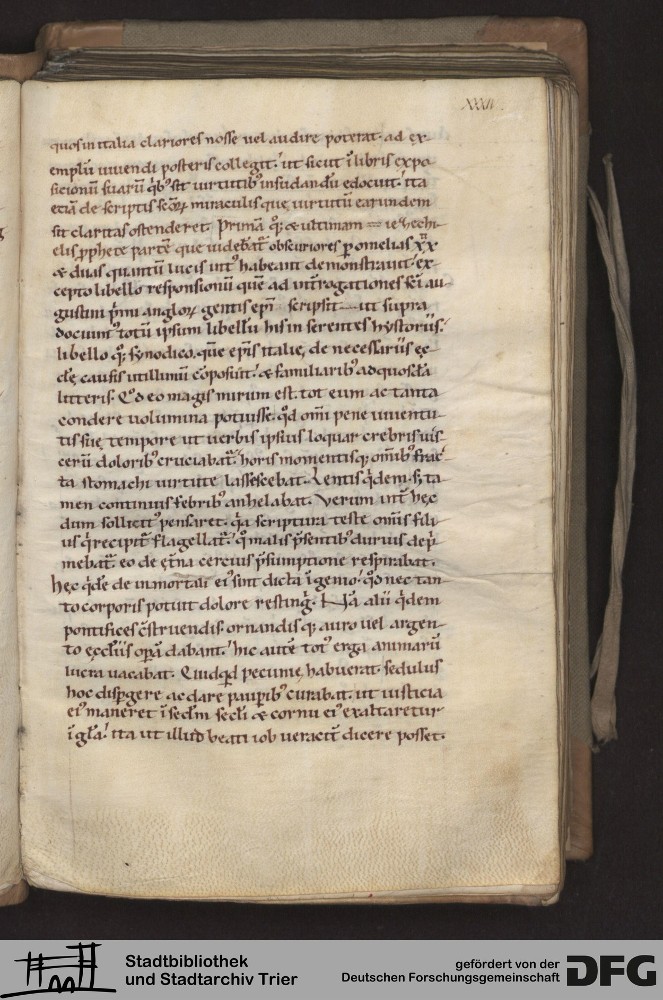 XXXIV
quos in italia clariores nosse uel audire poterat. ad ex
emplū uiuendi posteris collegit. ut sicut ī libris expo
sicionū suarū qib; sit uirtutib; insudandū edocuit. ita
etiā de scriptis scōꝝ miraculis que uirtutū earundem
sit claritas ostenderet. Primā q; & ultimam ieʒechi
elis ꝓphete partē que uidebāt̄ obscuriores ꝑ omelias xx
& duas quantū lucis int᷒ habeant demonstrauit. ex
cepto libello responsionū quē ad int̄rogationes sc̄i au
gustini p̄mi angloꝝ gentis ep̄i scripsit ut supra
docuim᷒ totū ipsum libellū his in serentes hystoriis.
libello q; synodico. quē ep̄is italie, de necessariis ęc
clę causis utillimū cōposuit. & familiarib᷒ ad quosdā
litteris. Qd eo magis mirum est. tot eum ac tanta
condere uolumina potuisse. qd om̄i pene iuuentu
tis suę tempore ut uerbis ipsius loquar crebris uis
cerū dolorib᷒ cruciabat̄. horis momentisq; om̄ib᷒ frac
ta stomachi uirtute lassescebat. Lentis q̄dem. s; ta
men continuis febrib᷒ anhelabat. Verum int̄ hęc
dum sollicit᷒ pensaret. q̄a scriptura teste om̄is fili
us q̄ recipit̄ flagellat̄. q° malis p̄sentib᷒ durius dep̄
mebat̄. eo de ęt̄na cercius p̄sumptione respirabat.
hęc q̄dē de inmortali ei᷒ sint dicta īgenio. qd nec tan
to corporis potuit dolore restinḡ. Nā alii q̄dem
pontifices c̄struendis. ornandis q; auro uel argen
to ęccl̄iis opā dabant. hic autē tot᷒ erga animarū
lucra uacabat. Quidqd pecunię habuerat. sedulus
hoc disꝑgere ac dare pauꝑib᷒ curabat. ut iusticia
ei᷒ maneret ī sęcl̄m sęcl̄i & cornu ei᷒ exaltaretur
ī gl̄a. ita ut illud beati iob ueracit̄ dicere posset.
Stadtbibliothek
und Stadtarchiv Trier
gefördert von der
Deutschen Forschungsgemeinschaft
DFG